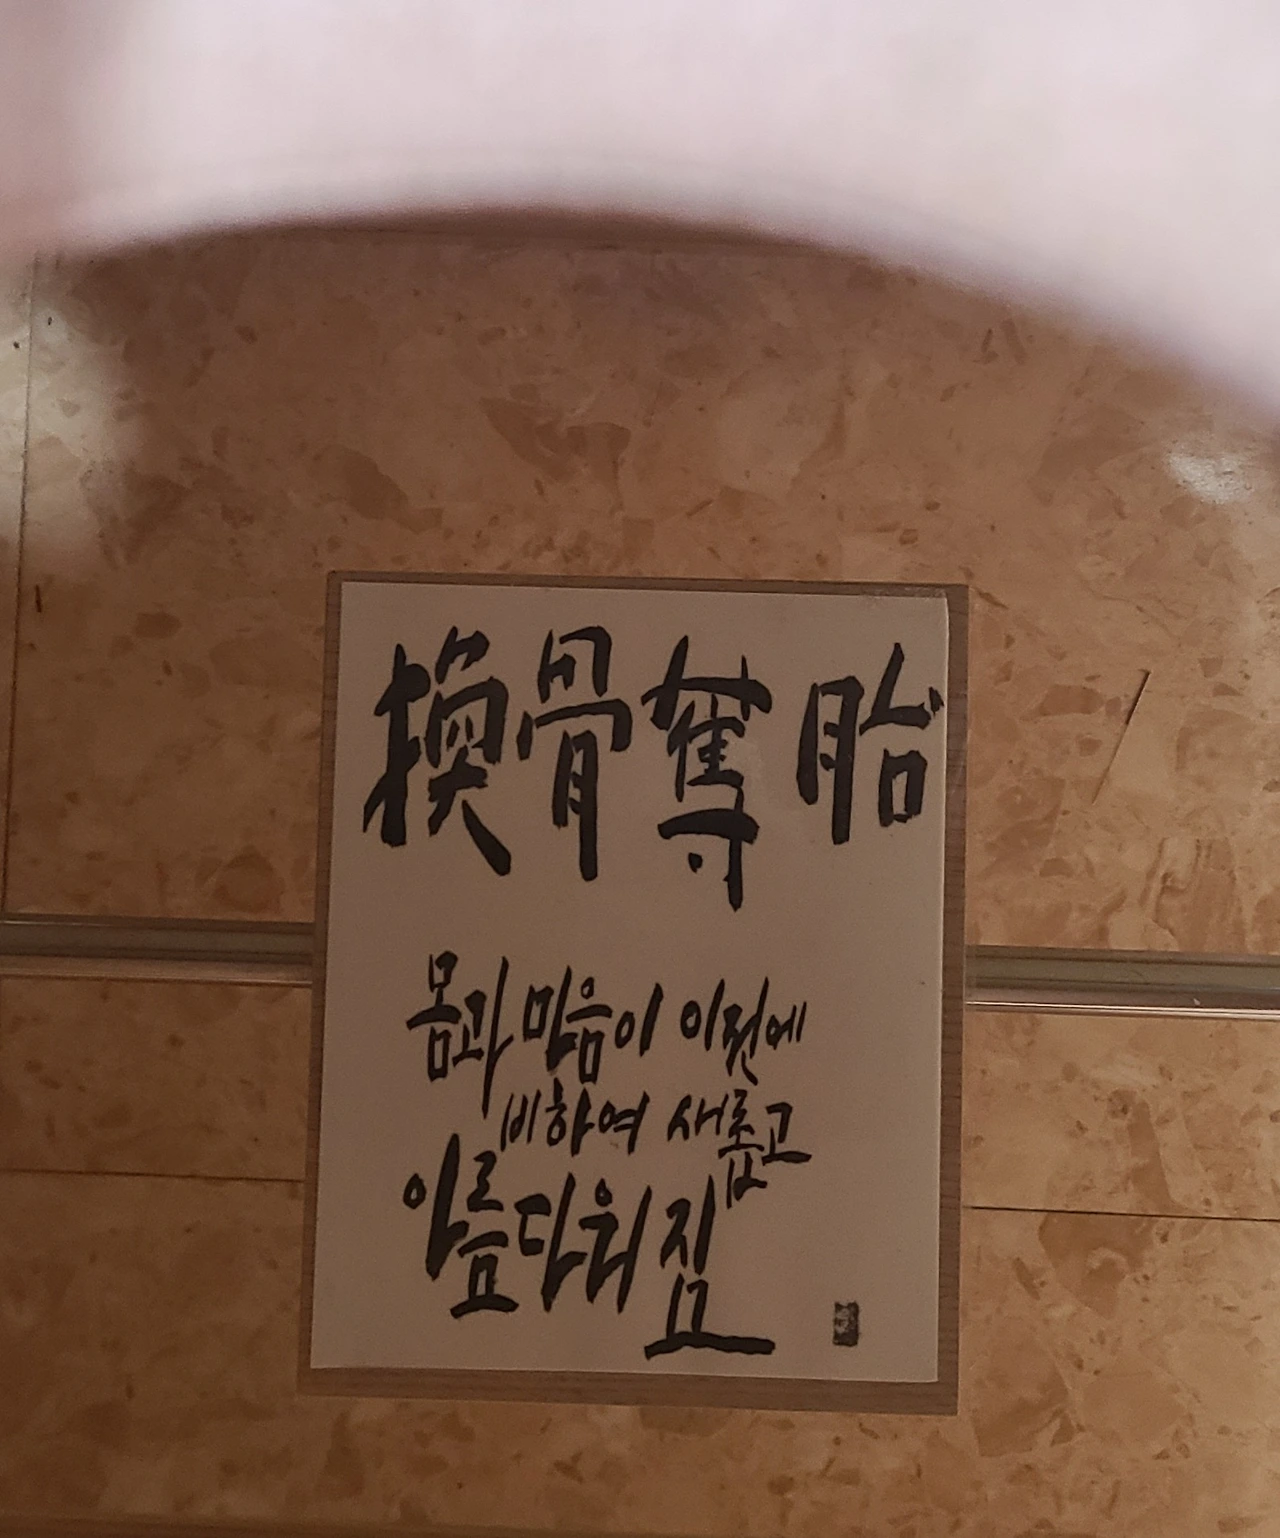 換骨奪胎
몸과 마음이 이전에
비하여 새롭고
아름다워짐